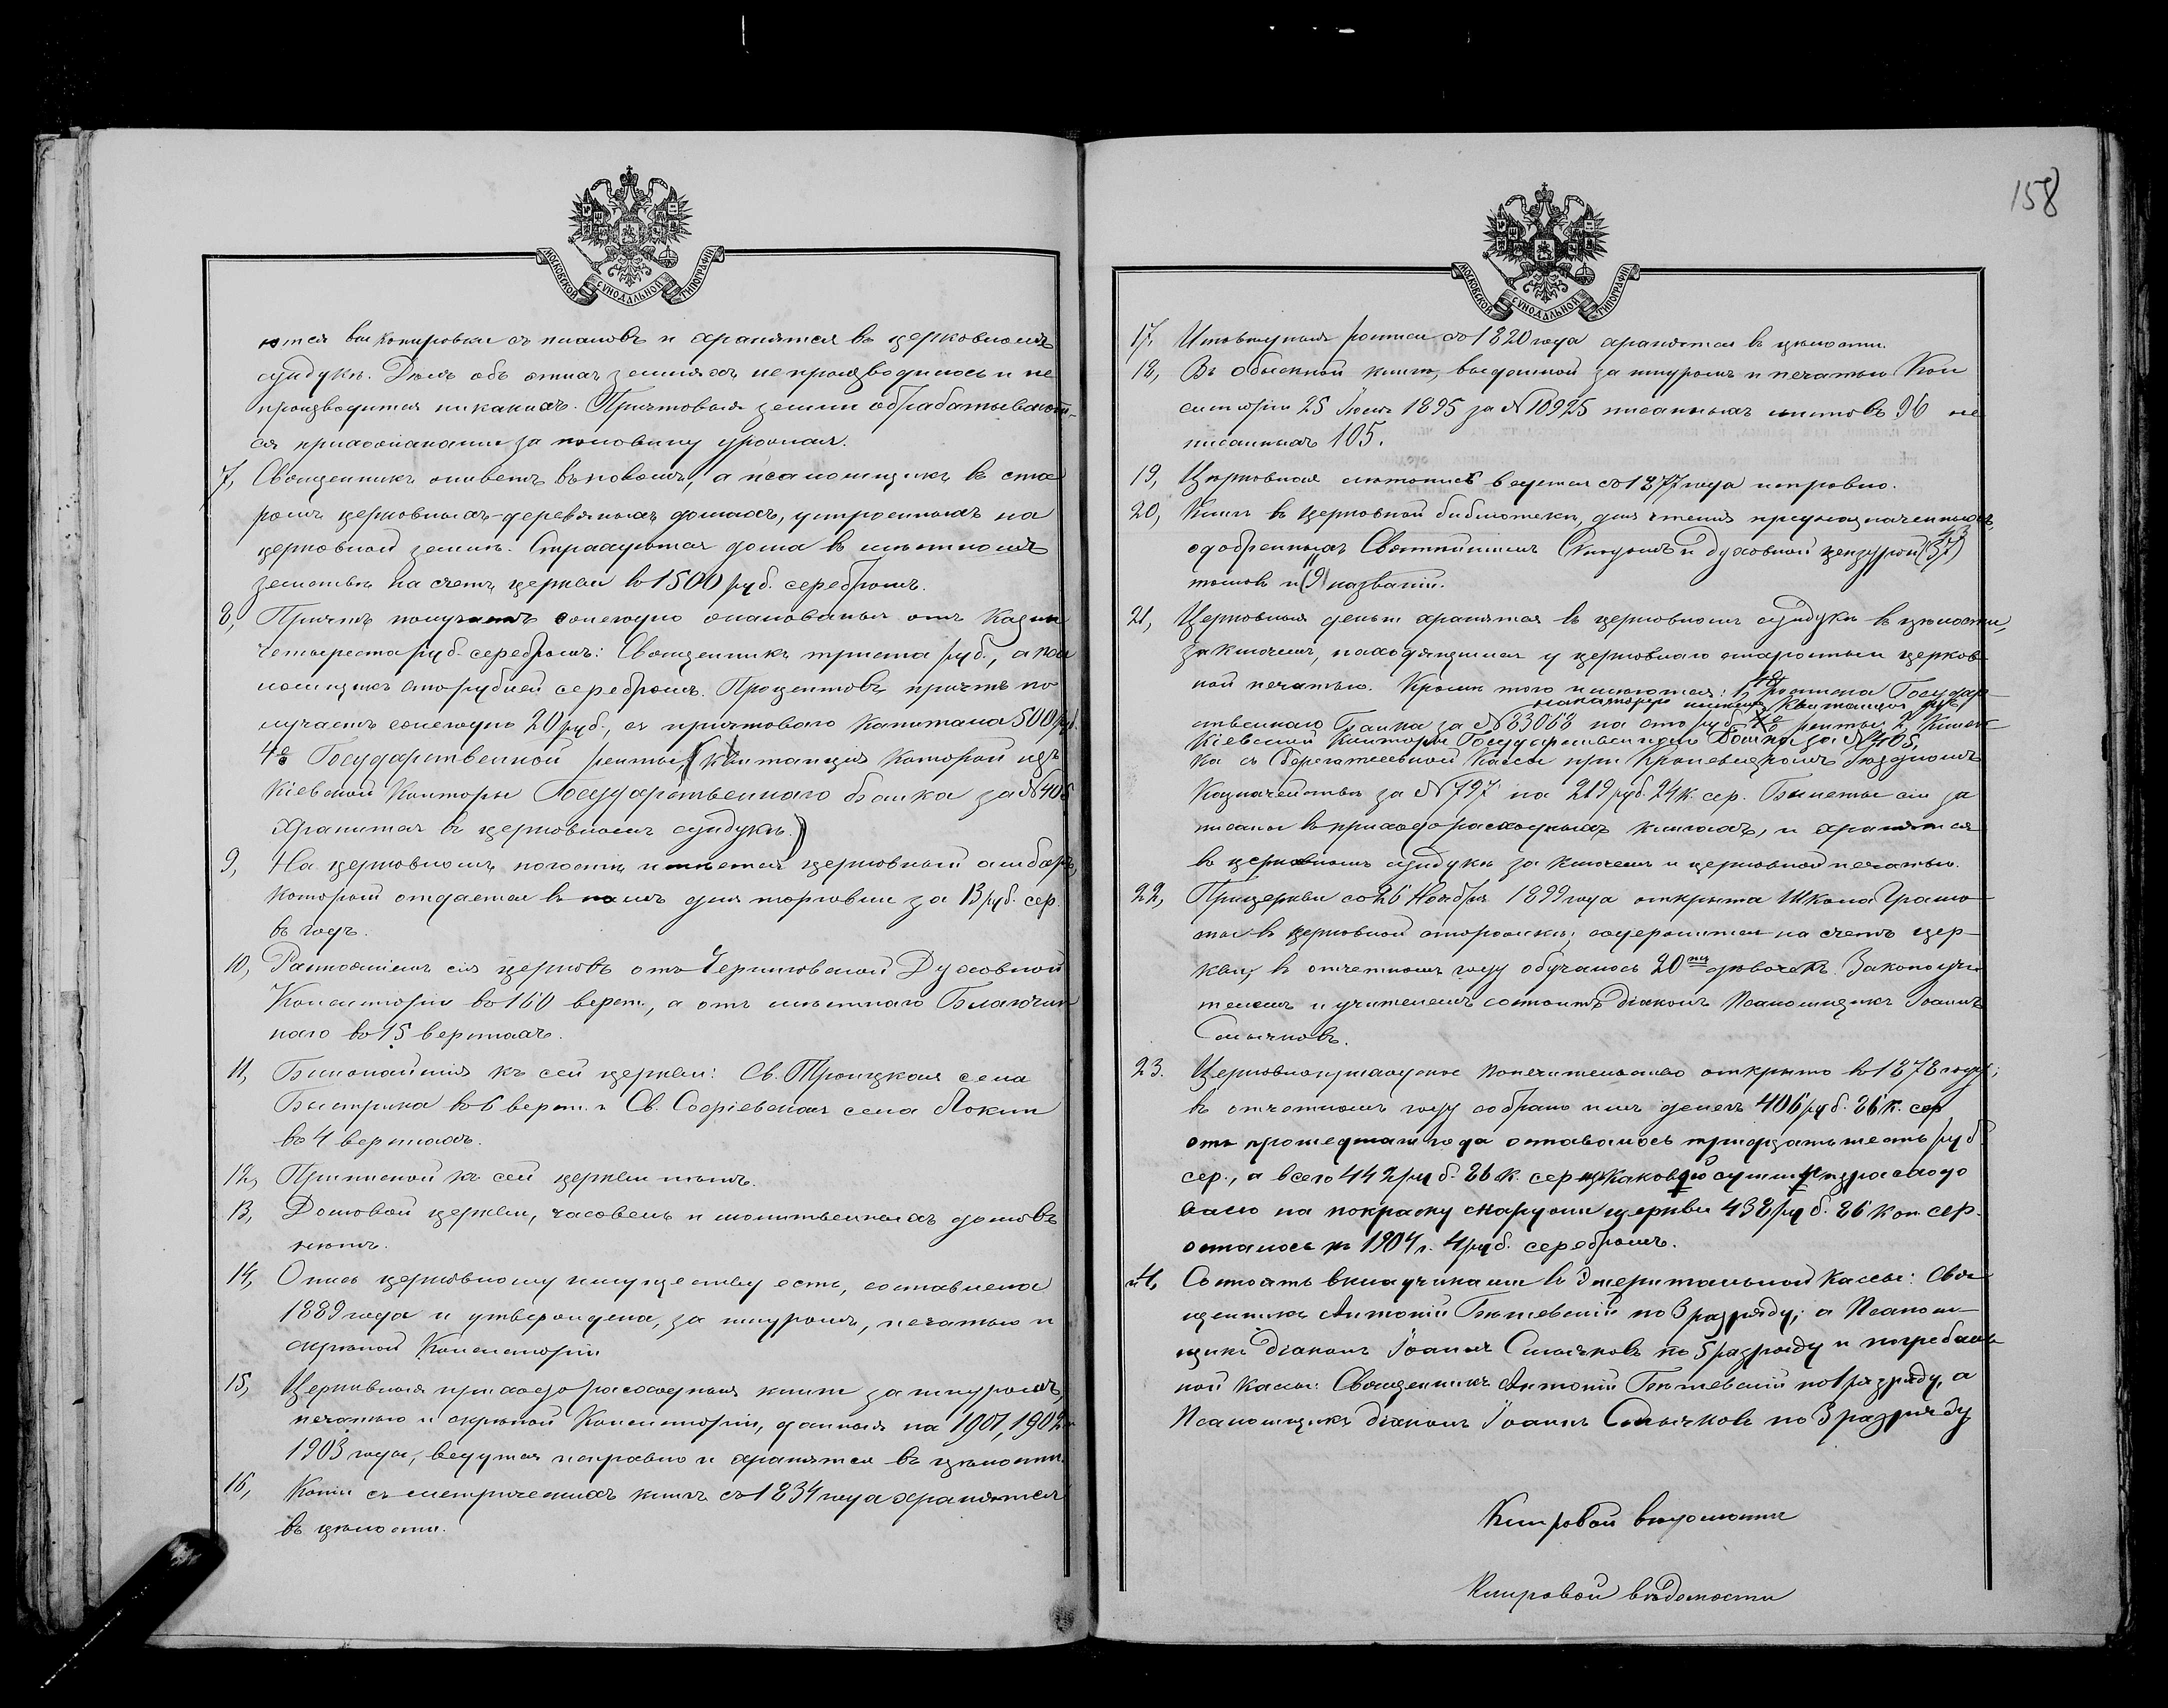 МОСКОВСКОЙ СѴНОДАЛЬНОЙ ТИПОГРАФІИ
ются выкопировки съ плановъ и хранятся въ церковномъ
сундукѣ. Дѣлъ объ этихъ земляхъ не производилось и не
производится никакихъ. Причтовыя земли обрабатывают-
ся прихожанами за половину урожая.
7, Священникъ живетъ въ новомъ, а псаломщикъ въ ста
ромъ церковныхъ-деревяныхъ домахъ, устроенныхъ на
церковной землѣ. Страхуются дома въ мѣстномъ
земствѣ на счетъ церкви въ 1500 руб. серебромъ.
8, Причтъ получаетъ ежегодно жалованья отъ казны
четыреста руб. серебромъ: Священникъ триста руб., а пса
ломщикъ сто рублей серебромъ. Процентовъ причтъ по
лучаетъ ежегодно 20 руб., съ причтоваго капитала 500 руб.
4% Государственной ренты, (квитанція которой изъ
Кіевской Конторы Государственнаго банка за № 405
хранится въ церковномъ сундукѣ.)
9, На церковномъ погостѣ имѣется церковный амбаръ,
который отдается въ наемъ для торговли за 13 руб. сер.
въ годъ.
10, Разстояніемъ сія церковь отъ Черниговской Духовной
Консисторіи въ 160 верст., а отъ мѣстнаго Благочин
наго въ 15 верстахъ.
11, Ближайшія къ сей церкви: Св. Троицкая села
Быстрика въ 6 верст. и Св. Софіевская села Локни
въ 4 верстахъ.
12, Приписной къ сей церкви нѣтъ.
13, Домовой церкви, часовень и молитвенныхъ домовъ
нѣтъ.
14, Опись церковному имуществу есть, составлена
1889 года и утверждена, за шнуромъ, печатью и
скрѣпой Консисторіи
15, Церковныя приходо расходныя книги за шнуромъ,
печатью и скрѣпой Консисторіи, данныя на 1901, 1902 и
1903 годы, ведутся исправно и хранятся въ цѣлости.
16, Копіи съ метрическихъ книгъ съ 1834 года хранятся
въ цѣлости.
158
МОСКОВСКОЙ СѴНОДАЛЬНОЙ ТИПОГРАФІИ
17, Исповѣдныя росписи съ 1820 года хранятся въ цѣлости.
18, Въ обыскной книгѣ, выданной за шнуромъ и печатью Кон
систоріи 25 1895 за № 10925 писанныхъ листовъ 96 не
писанныхъ 105.
19, Церковная лѣтопись ведется съ 1877 года исправно.
20, Книгъ въ церковной библіотекѣ, для чтенія предназначенныхъ,
одобренныхъ Святѣйшимъ Синодомъ и духовной цензурой (37) 43
томовъ и (9) названій.
21, Церковныя деньги хранятся въ церковномъ сундукѣ въ цѣлости,
за ключемъ, находящимся у церковнаго старосты и церков
ной печатью. Кромѣ того имѣются: 1, 4% росписка Государ-
на которую имѣется квитанція изъ
ственнаго Банка за № 83068 на сто руб. 4% ренты 2, книж-
Кіевской Конторы Государственнаго Банка за № 405,
ка съ Сберегательной Кассы при Кролевецкомъ уѣздномъ
Казначействѣ за № 797 на 219 руб. 24 к. сер. Билеты сіи за
писаны въ приходо расходныхъ книгахъ, и хранятся
въ церковномъ сундукѣ за ключемъ и церковной печатью.
22, При церкви съ 26 Ноября 1899 года открыта Школа Грамо
ты въ церковной сторожкѣ; содержится на счетъ цер-
кви, въ отчетномъ году обучалось 20ть дѣвочекъ. Законоучи
телемъ и учителемъ состоитъ Діаконъ Псаломщикъ Іоаннъ
Смычковъ.
23. Церковноприходское попечительство открыто въ 1878 году;
въ отчетномъ году собрано имъ денегъ 406 руб. 86 к. сер
отъ прошедшаго года оставалось тридцать шесть руб.
сер., а всего 442 руб. 86 к. сер. изъ каковой суммы израсходо
вано на покраску снаружи церкви 438 руб. 86 коп. сер.
осталось къ 1904 г. 4 руб. серебромъ.
24, Состоятъ вкладчиками въ Эмеритальной Кассы: Свя
щенникъ Антоній по 3 разряду; а Псалом-
щикъ діаконъ Іоаннъ Смычковъ по 5 разряду и погребаль
ной Кассы: Священникъ Антоній по 1 разряду, а
Псаломщикъ діаконъ Іоаннъ Смычковъ по 3 разряду
Клировой вѣдомости
Клировой вѣдомости